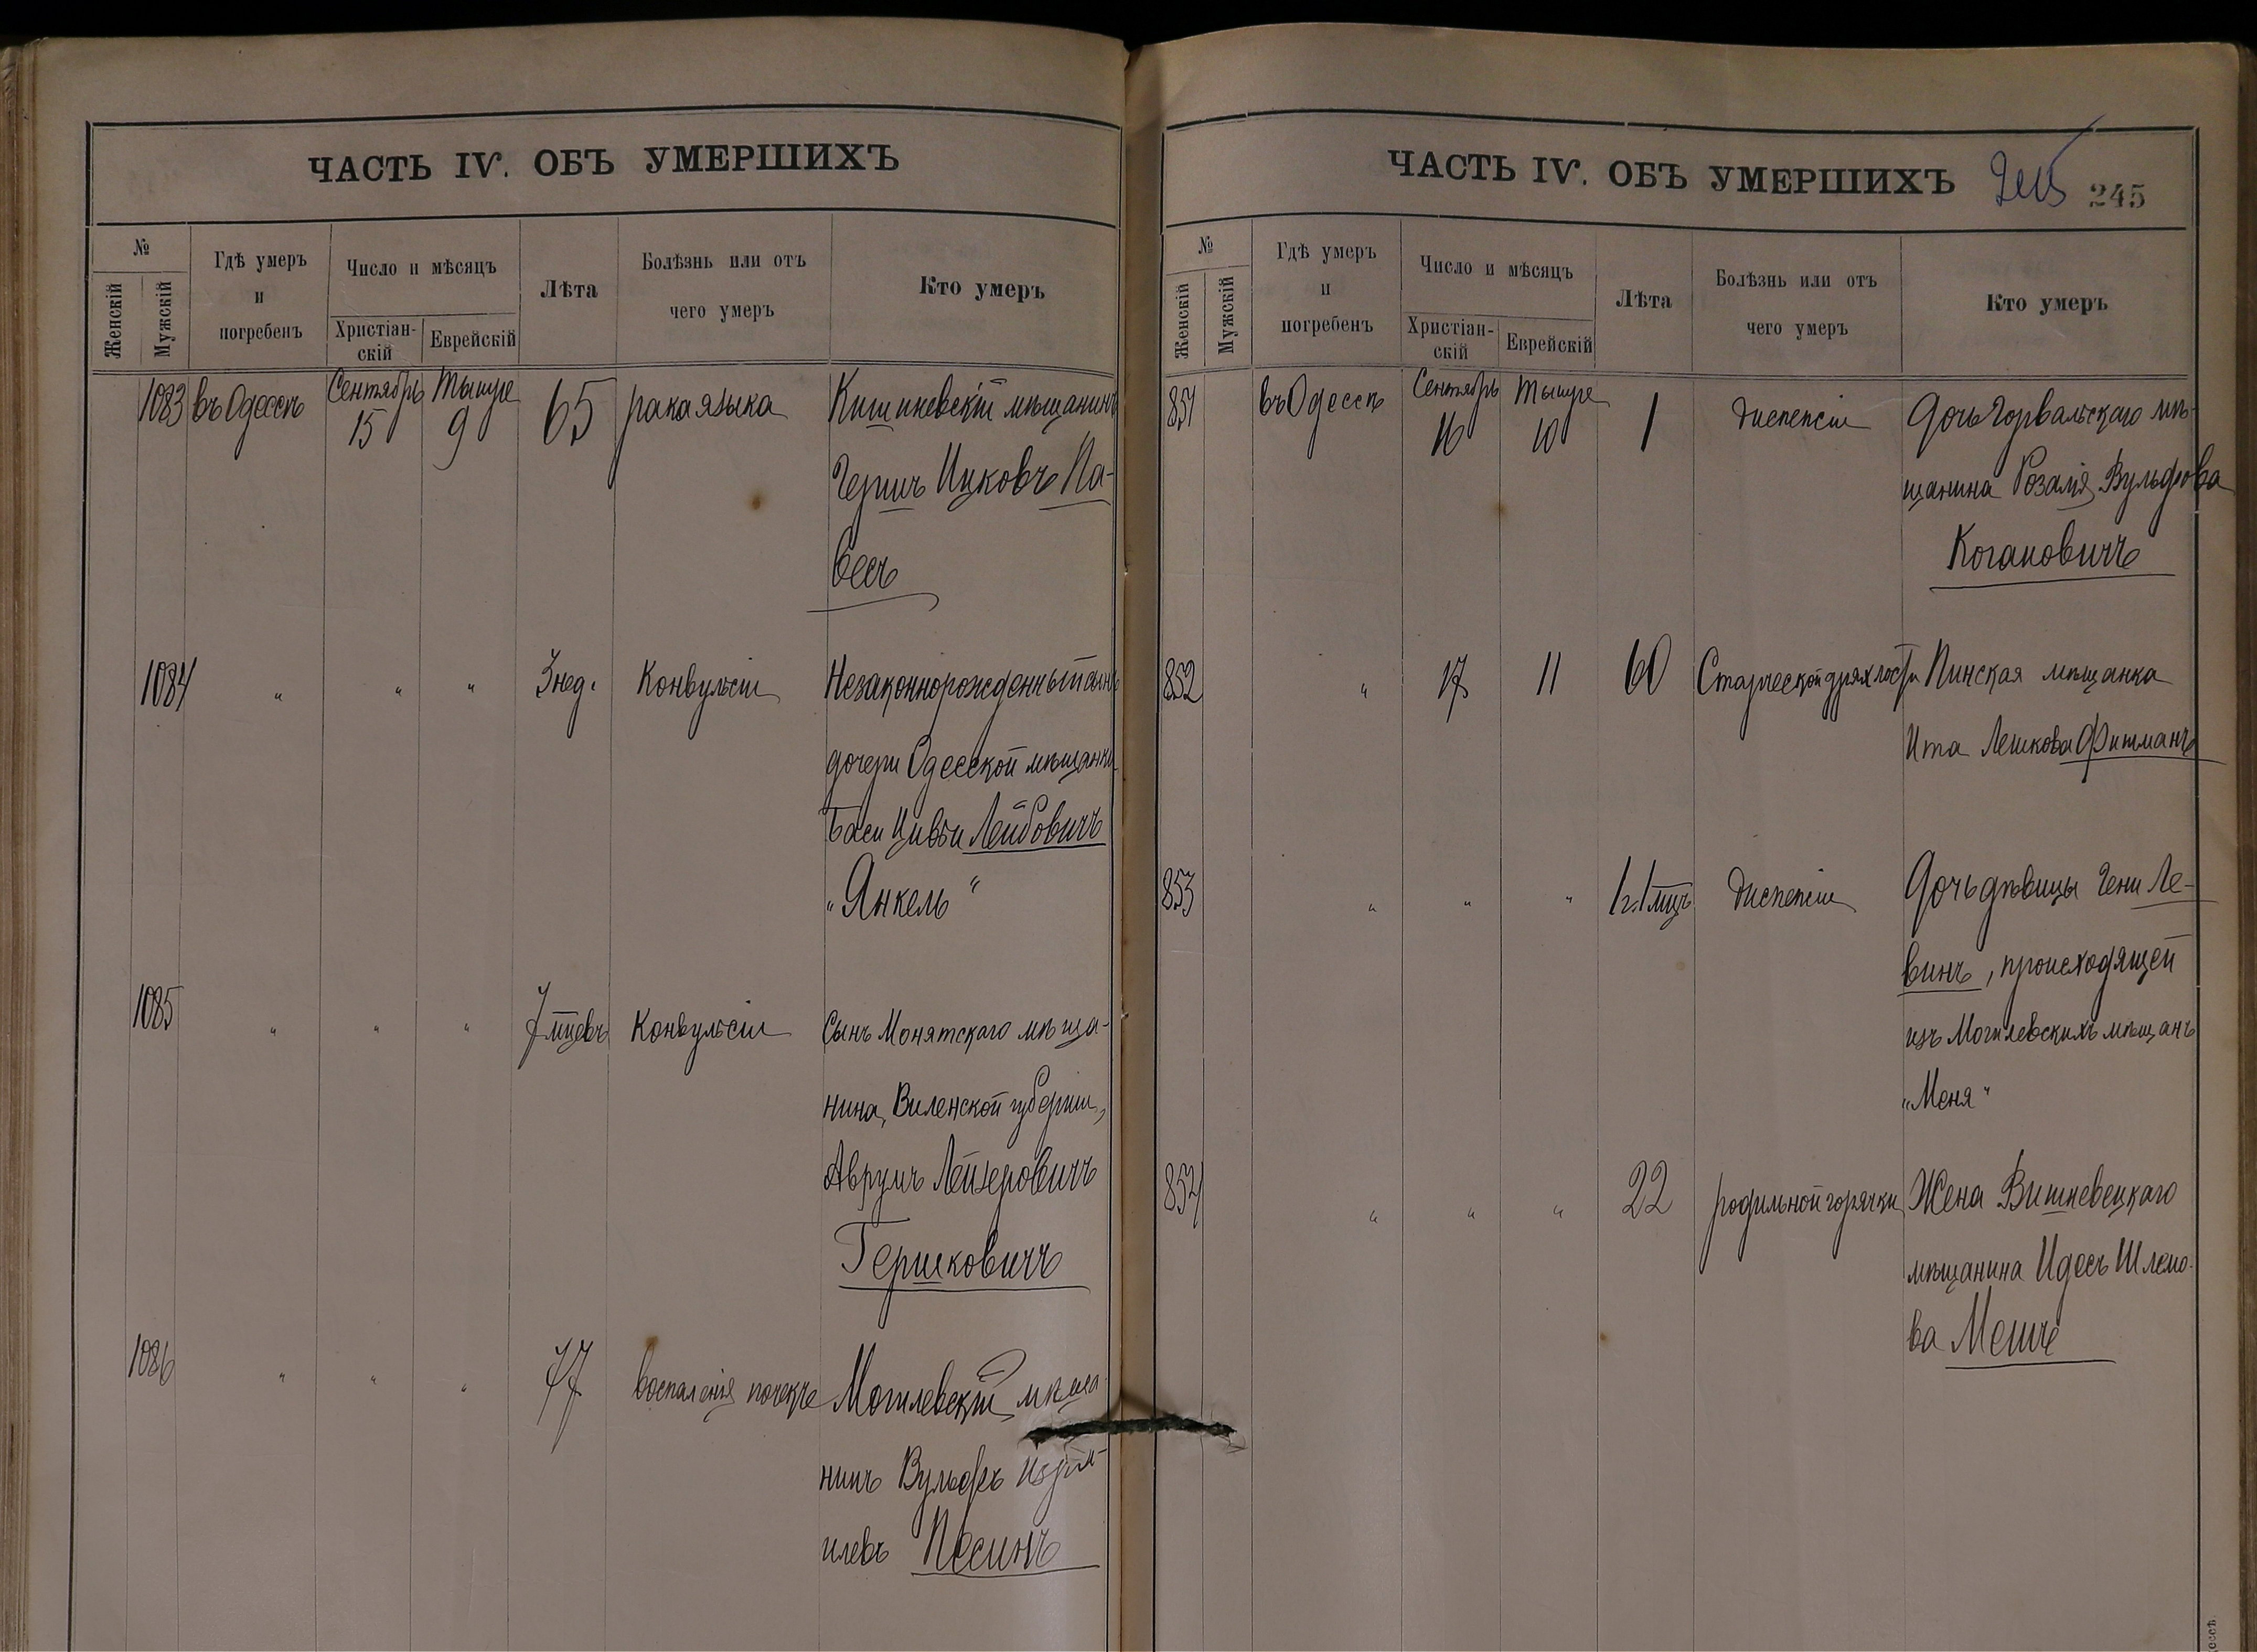 ЧАСТЬ IV. ОБЪ УМЕРШИХЪ
№
Женскій
Мужскій
Гдѣ умеръ
и
погребенъ
Число и мѣсяцъ
Христіан-
скій
Еврейскій
Лѣта
Болѣзнь или отъ
чего умеръ
Кто умеръ
1083 въ Одессѣ Сентябрь 15 Тышре 9 65 рака языка Кишиневскій мѣщанинъ
Гершъ Ицковъ Па-
весъ
1084 " " " 3 нед. Конвульсіи Незаконнорожденный сынъ
дочери Одесской мѣщанки
Баси Цивьи Лейбовичъ
"Янкель"
1085 " " " 7 мцевъ Конвульсіи Сынъ Монятскаго мѣща-
нина, Виленской губерніи,
Аврумъ Лейзеровичъ
Гершковичъ
1086 " " " 77 воспаленія почекъ Могилевскій мѣща-
нинъ Вульфъ Изра-
илевъ Песинъ
ЧАСТЬ IV. ОБЪ УМЕРШИХЪ 245 245
№
Женскій
Мужскій
Гдѣ умеръ
и
погребенъ
Число и мѣсяцъ
Христіан-
скій
Еврейскій
Лѣта
Болѣзнь или отъ
чего умеръ
Кто умеръ
851 въ Одессѣ Сентябрь 16 Тышре 10 1 Диспепсіи Дочь Горвальскаго мѣ-
щанина Розалія Вульфова
Когановичъ
852 " 17 11 60 Старческой дряхлости Пинская мѣщанка
Ита Лешкова Фитманъ
853 " " " 1 г. 1 мцъ Диспепсіи Дочь дѣвицы Гени Ле-
винъ, происходящей
изъ Могилевскихъ мѣщанъ
"Меня"
854 " " " 22 родильной горячки Жена Вишневецкаго
мѣщанина Идесъ Шлемо-
ва Мешъ